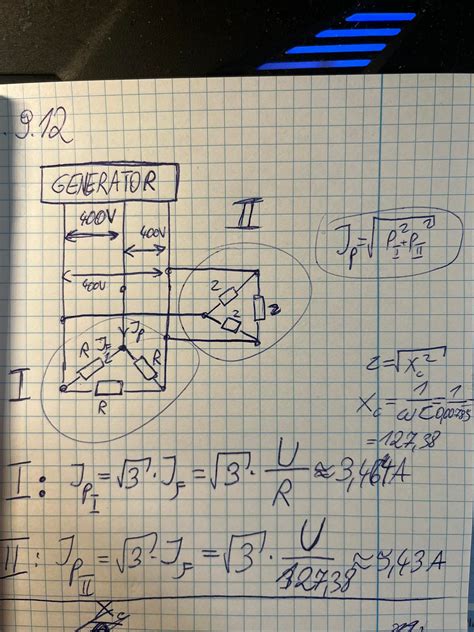 9.12
GENERATOR
400V
400V
400V
II
J_p = √(P_I² + P_II²)
z
z
z
J_p
J_F
R
R
R
I
z = √(X_c²)
X_c = 1/(ωC) = 1/0,00785
= 127,38
I: J_pI = √3 · J_F = √3 · U/R ≈ 3,464A
II: J_pII = √3 · J_F = √3 · U/127,38 ≈ 5,43A
X_c